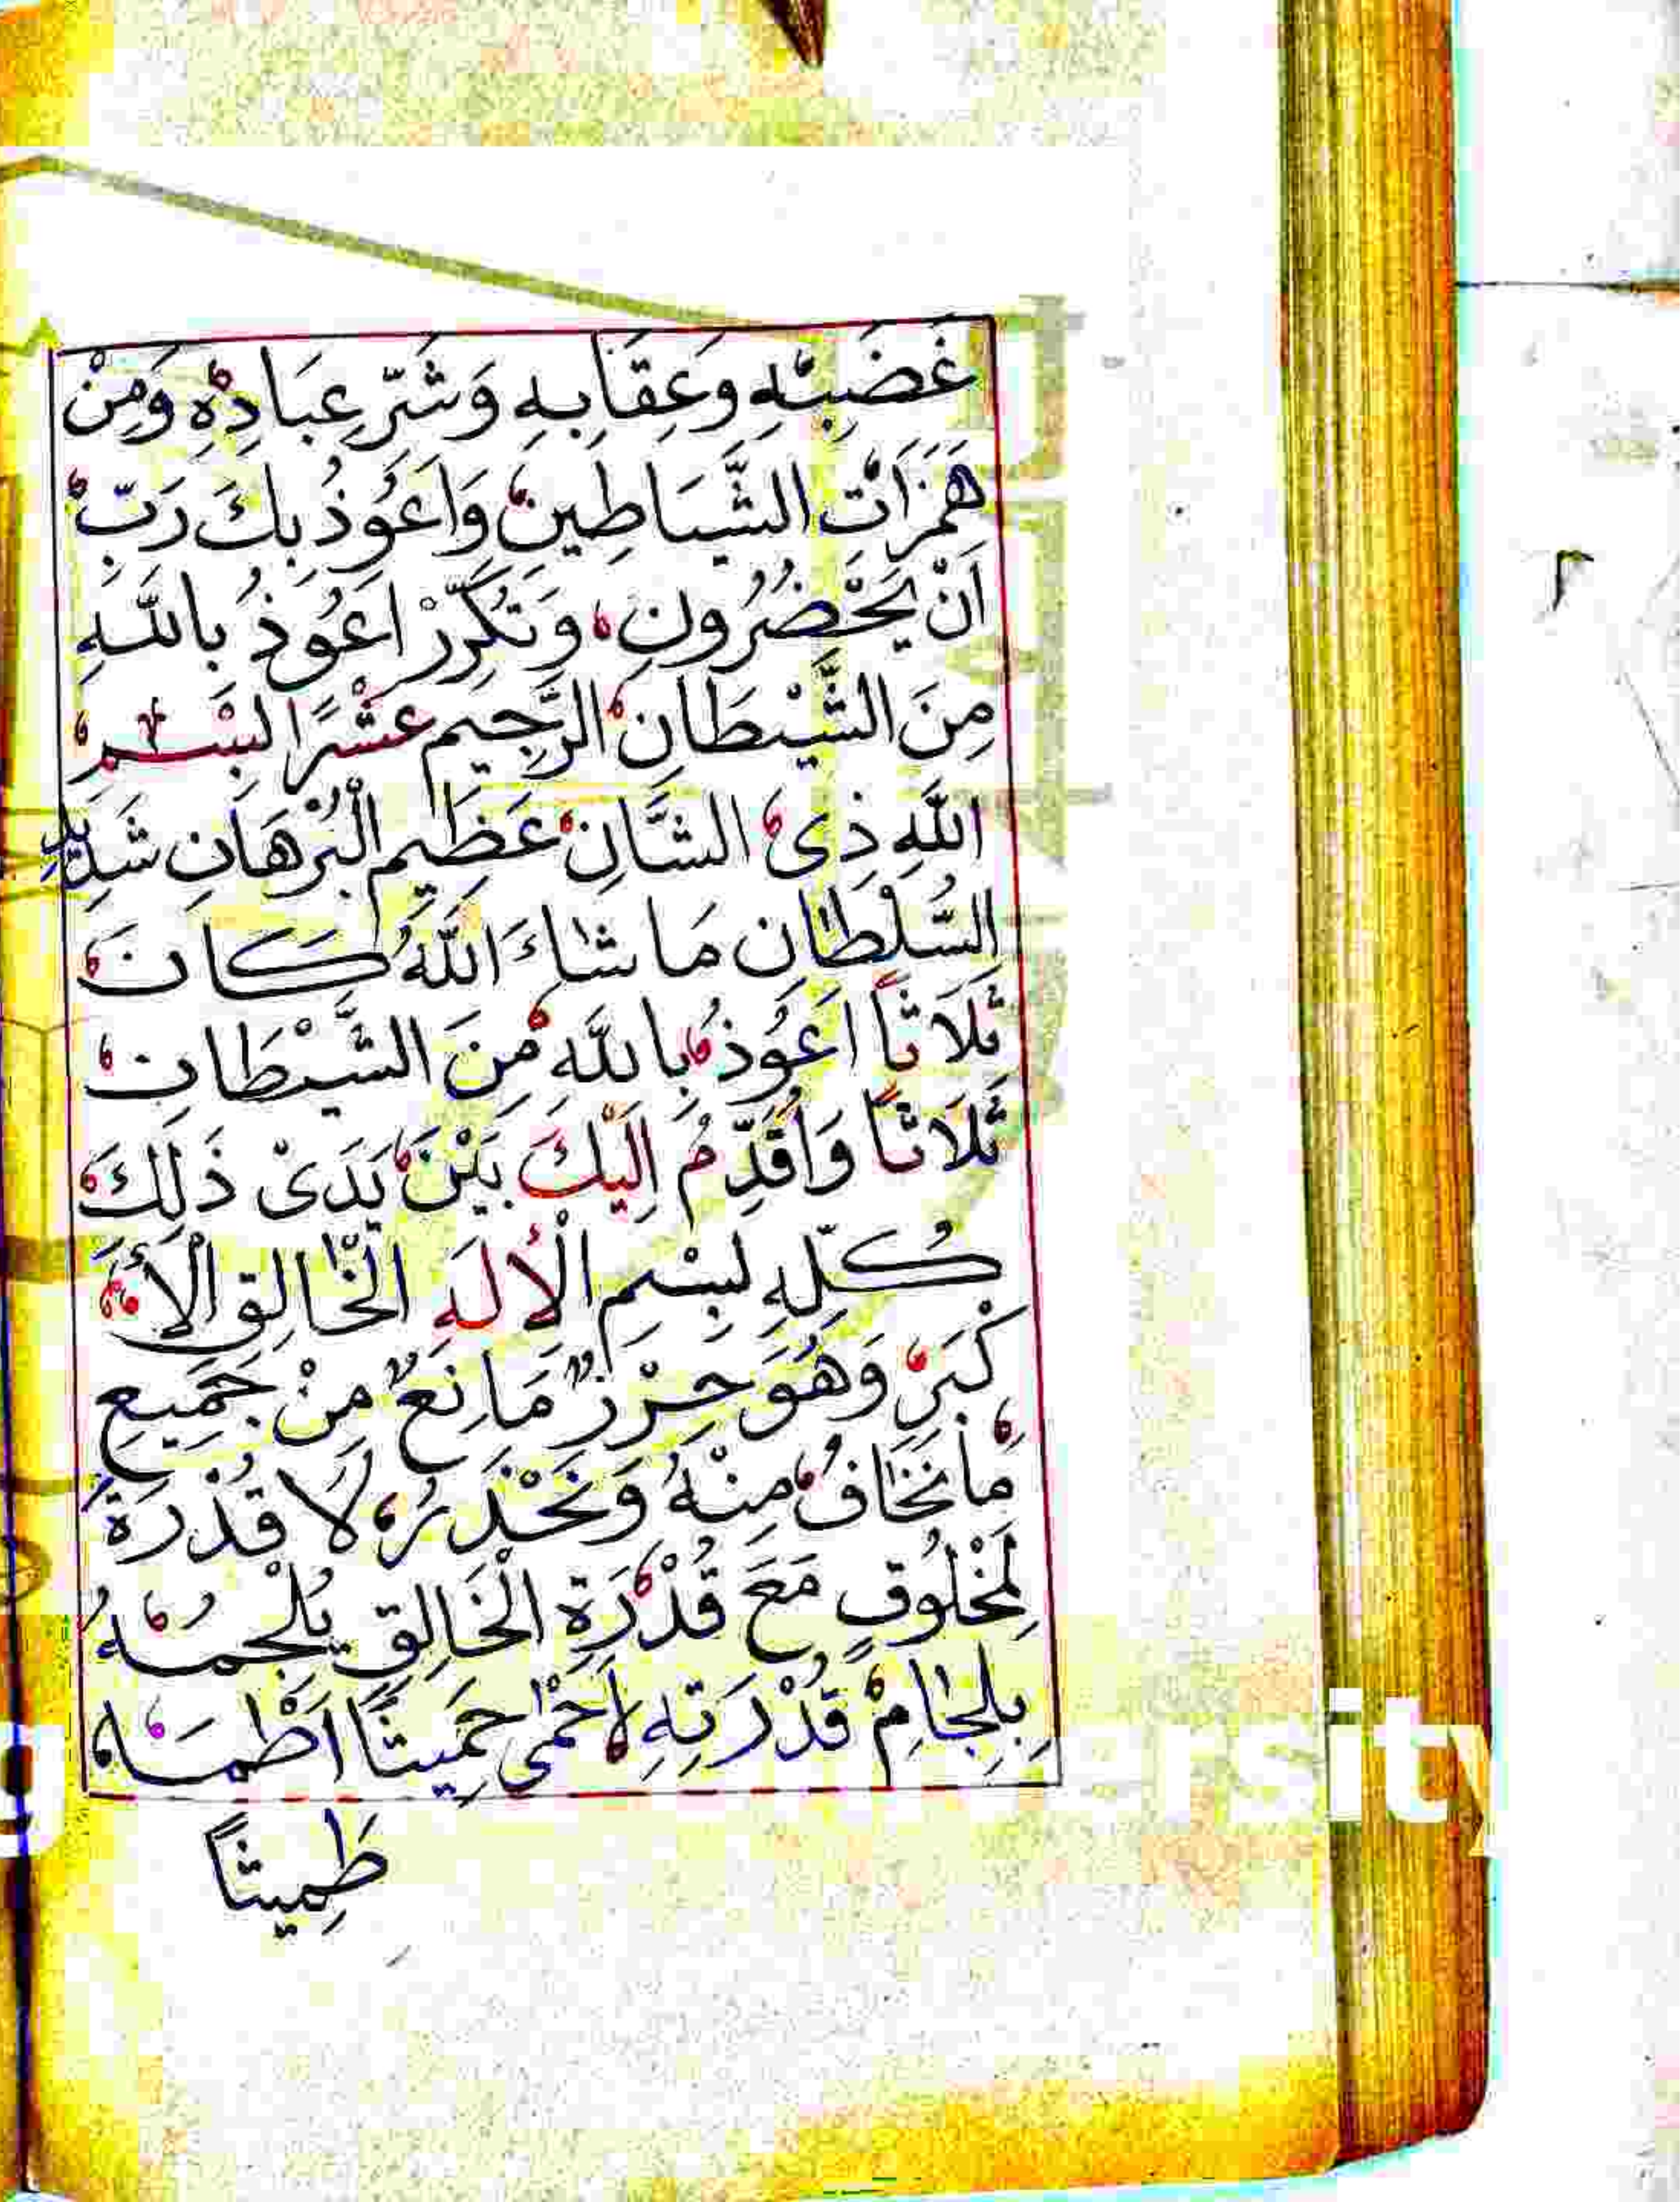 غَضَبِهِ وَعِقَابِهِ وَشَرِّ عِبَادِهِ وَمِنْ
هَمَزَاتِ الشَّيَاطِينِ وَاَعُوذُ بِكَ رَبِّ
اَنْ يَحْضُرُونِ وَتُكَرِّرْ اَعُوذُ بِاللَّهِ
مِنَ الشَّيْطَانِ الرَّجِيمِ عَشْرًا بِسْمِ
اللَّهِ ذِى الشَّانِ عَظِيمِ الْبُرْهَانِ شَدِيدِ
السُّلْطَانِ مَا شَاءَ اللَّهُ كَانَ
ثَلَاثاً اَعُوذُ بِاللَّهِ مِنَ الشَّيْطَانِ
ثَلَاثاً وَاُقَدِّمُ اِلَيْكَ بَيْنَ يَدَىْ ذَلِكَ
كُلِّهِ بِسْمِ الْاِلَهِ الْخَالِقِ الْأَ
كْبَرِ وَهُوَ حِرْزٌ مَانِعٌ مِنْ جَمِيعِ
مَا نَخَافُ مِنْهُ وَنَحْذَرُ لَا قُدْرَةَ
لِمَخْلُوقٍ مَعَ قُدْرَةِ الْخَالِقِ يُلْجِمُهُ
بِلِجَامِ قُدْرَتِهِ اَحْمَى حَمِيثًا اَطْمَى
طَمِيثاً
ity
٢